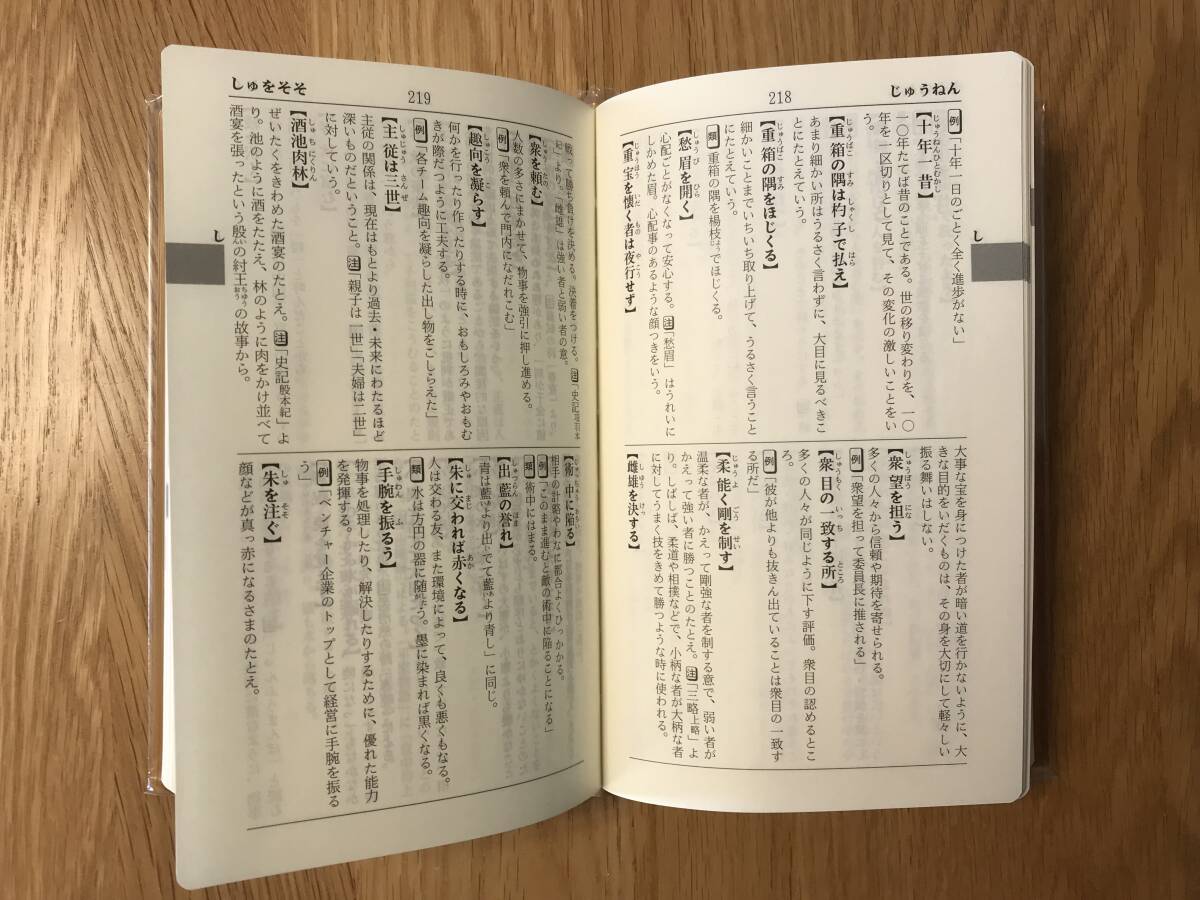 じゅうねん
218
例「十年一日のごとく全く進歩がない」
【十年一昔】じゅうねんひとむかし
一〇年たてば昔のことである。世の移り変わりを、一〇
年を一区切りとして見て、その変化の激しいことをい
う。
【重箱の隅は杓子で払え】じゅうばこ すみ しゃくし はら
あまり細かい所はうるさく言わずに、大目に見るべきこ
とにたとえていう。
【重箱の隅をほじくる】じゅうばこ すみ
細かいことまでいちいち取り上げて、うるさく言うこと
にたとえていう。
類 重箱の隅を楊枝でほじくる。
【愁眉を開く】しゅうび ひら
心配ごとがなくなって安心する。注「愁眉」はうれいに
しかめた眉。心配事のあるような顔つきをいう。
【重宝を懐く者は夜行せず】じゅうほう いだ もの やこう
大事な宝を身につけた者が暗い道を行かないように、大
きな目的をいだくものは、その身を大切にして軽々しい
振る舞いはしない。
【衆望を担う】しゅうぼう にな
多くの人々から信頼や期待を寄せられる。
例「衆望を担って委員長に推される」
【衆目の一致する所】しゅうもく いっち ところ
多くの人々が同じように下す評価。衆目の認めるとこ
ろ。
例「彼が他よりも抜きん出ていることは衆目の一致す
る所だ」
【柔能く剛を制す】じゅうよ ごう せい
温柔な者が、かえって剛強な者を制する意で、弱い者が
かえって強い者に勝つことのたとえ。注「三略上略」よ
り。しばしば、柔道や相撲などで、小柄な者が大柄な者
に対してうまく技をきめて勝つような時に使われる。
【雌雄を決する】しゆう けっ
し
しゅをそそ
219
戦って勝ち負けを決める。決着をつける。注「史記項羽本
紀」より。「雌雄」は強い者と弱い者の意。
【衆を頼む】しゅう たの
人数の多さにまかせて、物事を強引に押し進める。
例「衆を頼んで門内になだれこむ」
【趣向を凝らす】しゅこう こ
何かを行ったり作ったりする時に、おもしろみやおもむ
きが際だつように工夫する。
例「各チーム趣向を凝らした出し物をこしらえた」
【主従は三世】しゅじゅう さんぜ
主従の関係は、現在はもとより過去・未来にわたるほど
深いものだということ。注「親子は一世」「夫婦は二世」
に対していう。
【酒池肉林】しゅちにくりん
ぜいたくをきわめた酒宴のたとえ。注「史記殷本紀」よ
り。池のように酒をたたえ、林のように肉をかけ並べて
酒宴を張ったという殷の紂王の故事から。
【術中に陥る】じゅっちゅう おちい
相手の計略やわなに都合よくひっかかる。
例「このまま進むと敵の術中に陥ることになる」
類 術中にはまる。
【出藍の誉れ】しゅつらん ほま
「青は藍より出でて藍より青し」に同じ。
【朱に交われば赤くなる】しゅ まじ あか
人は交わる友、また環境によって、良くも悪くもなる。
類 水は方円の器に随う。墨に染まれば黒くなる。
【手腕を振るう】しゅわん ふ
物事を処理したり、解決したりするために、優れた能力
を発揮する。
例「ベンチャー企業のトップとして経営に手腕を振る
う」
【朱を注ぐ】しゅ そそ
顔などが真っ赤になるさまのたとえ。
し